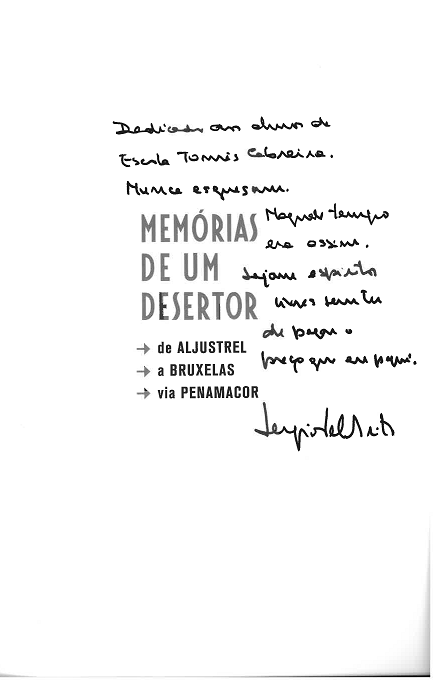 Dedicado aos alunos da
Escola Tomás Cabreira.
Nunca esqueçam.
Naquele tempo
era assim.
Sejam espíritos
livres sem ter
de pagar o
preço que eu paguei.
MEMÓRIAS
DE UM
DESERTOR
→ de ALJUSTREL
→ a BRUXELAS
→ via PENAMACOR